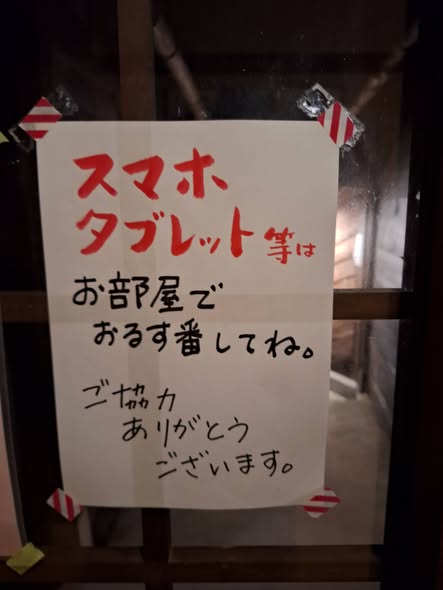 スマホ
タブレット等は
お部屋で
おるす番してね。
ご協力
ありがとう
ございます。